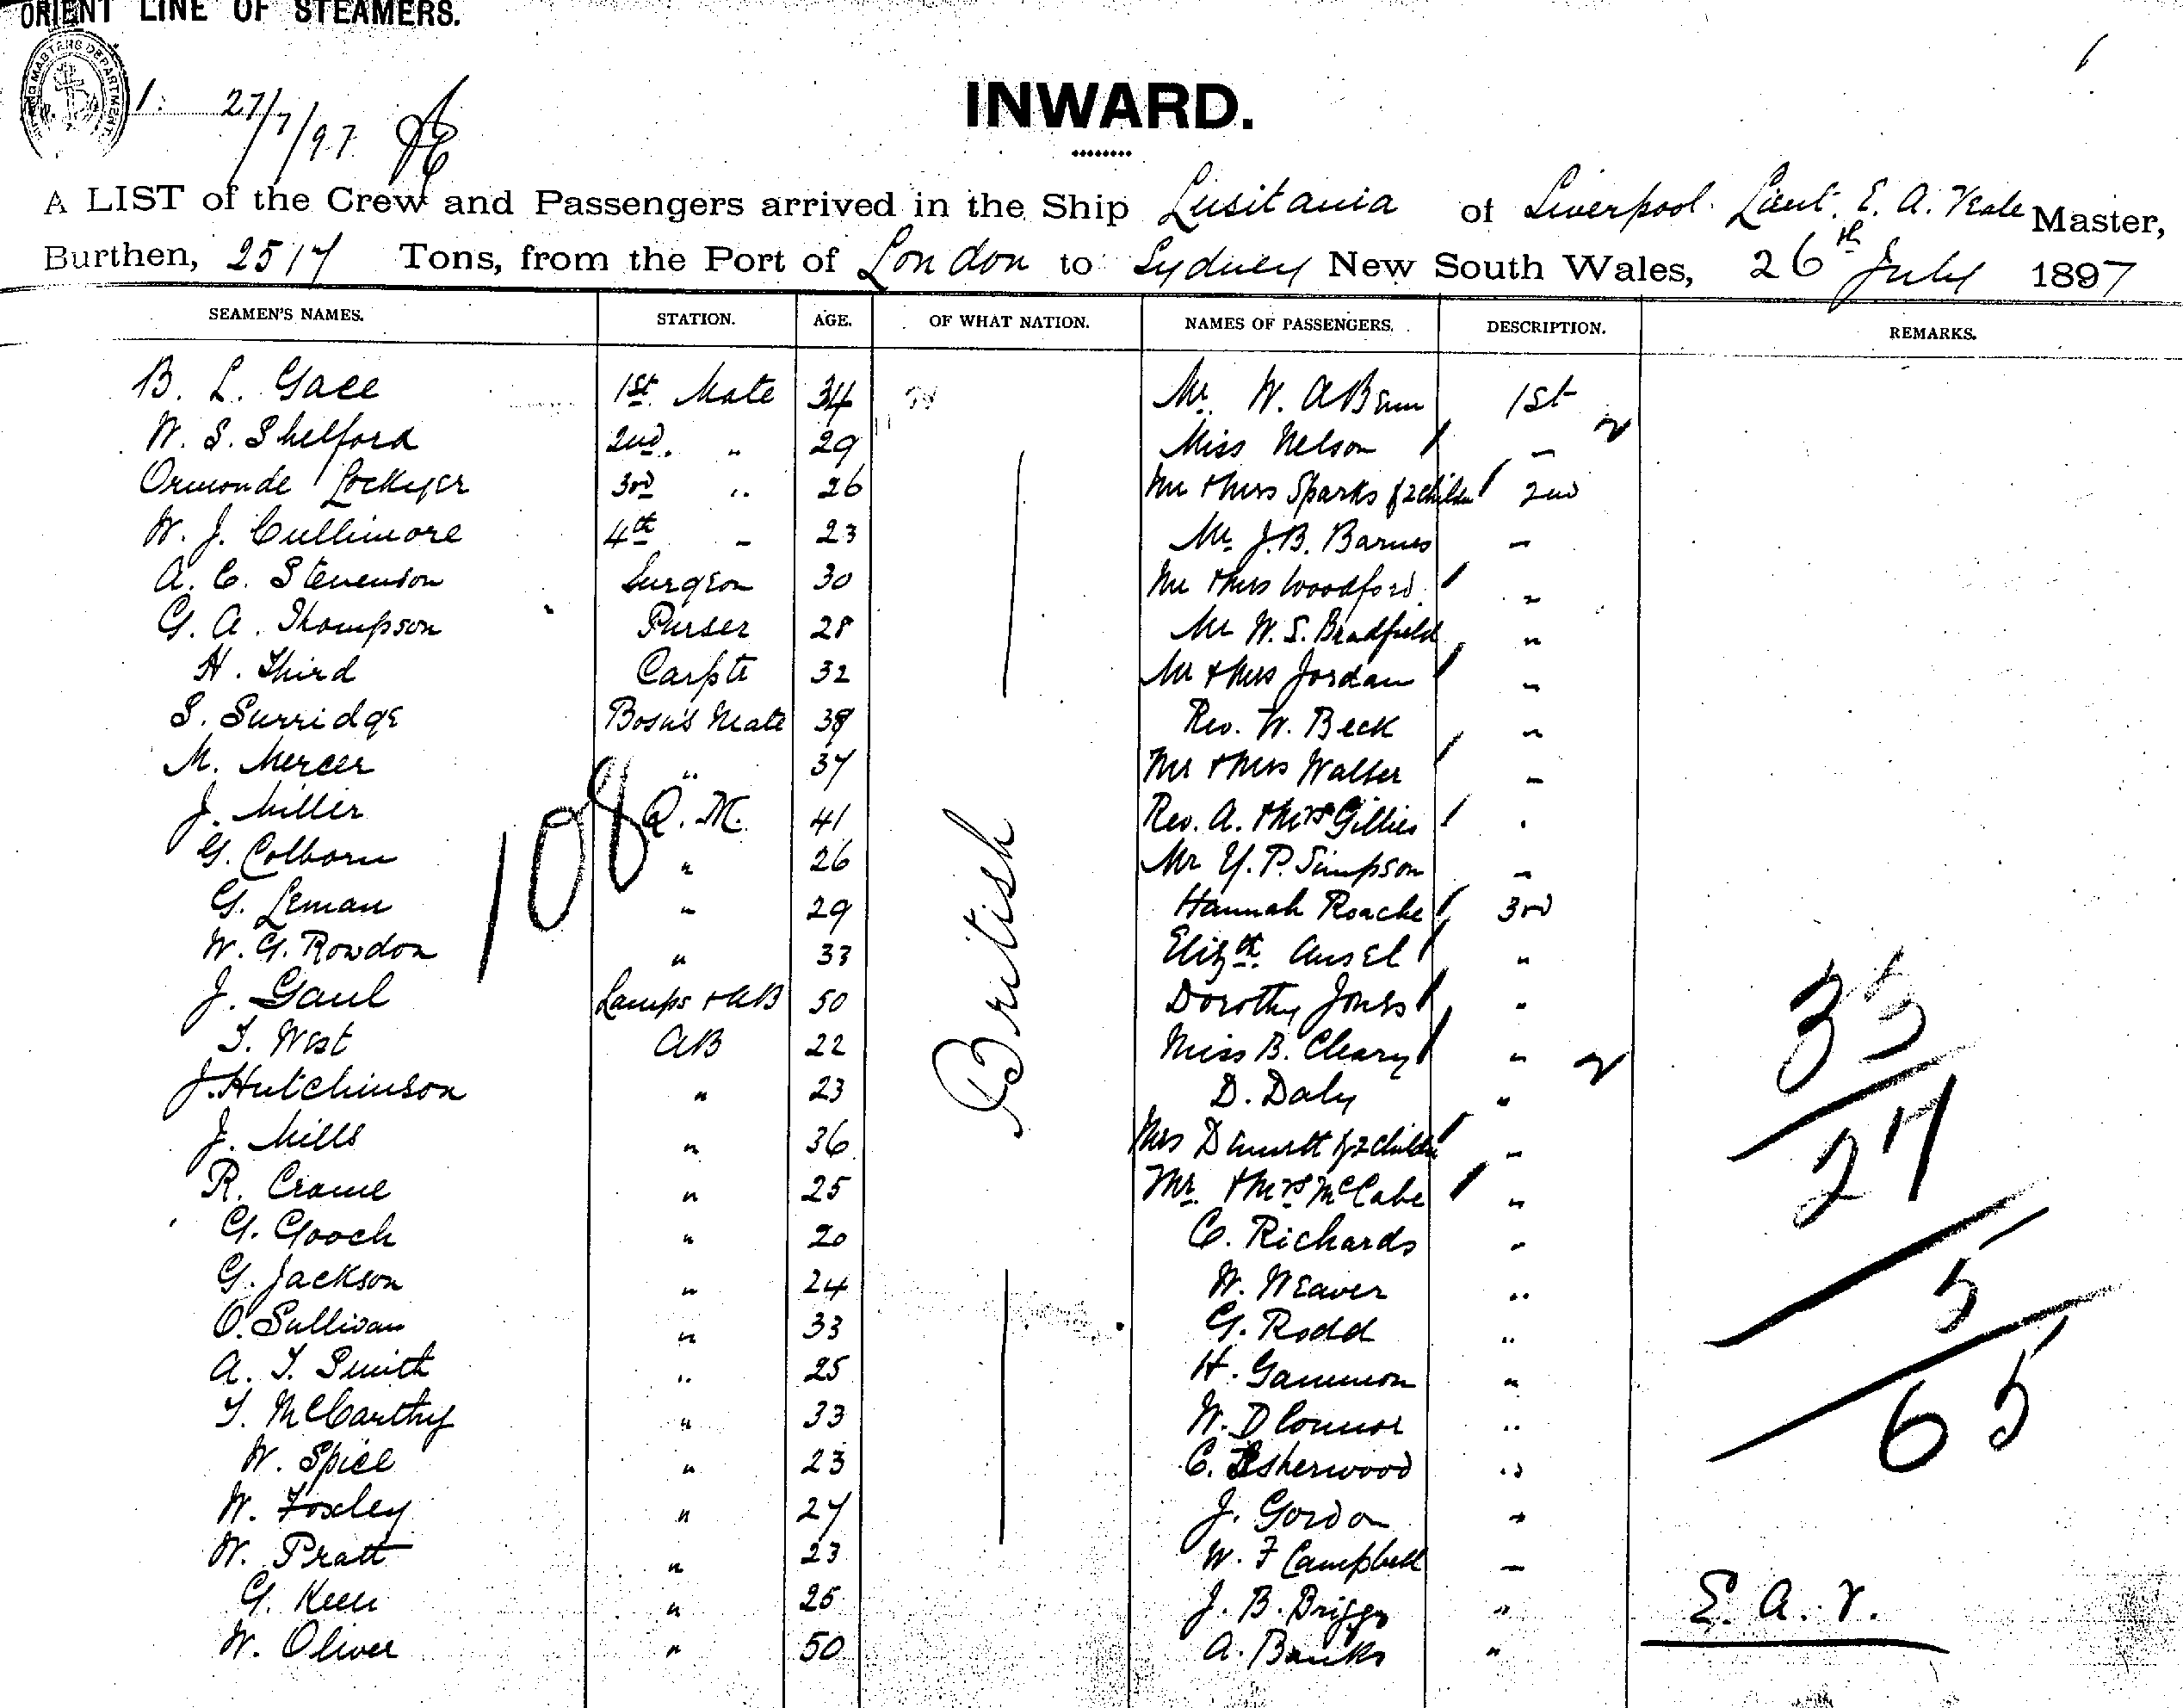 ORIENT LINE OF STEAMERS.
27/7/97
INWARD.
A LIST of the Crew and Passengers arrived in the Ship Lusitania of Liverpool. Lieut. E. A. Veale Master,
Burthen, 2517 Tons, from the Port of London to Sydney New South Wales, 26th July 1897
SEAMEN'S NAMES. STATION. AGE. OF WHAT NATION. NAMES OF PASSENGERS. DESCRIPTION. REMARKS.
B. L. Gace 1st Mate 34 Mr. W. A. 1st
W. S. Shelford 2nd. " 29 Miss Nelson "
Ormonde Lockyer 3rd " 26 Mr & Mrs Sparks & 2 childn 2nd
W. J. Cullimore 4th " 23 Mr. J. B. Barnes "
A. C. Stevenson Surgeon 30 Mr & Mrs Woodford. "
G. A. Thompson Purser 28 Mr W. S. Bradfield "
H. Third Carptr 32 Mr & Mrs Jordan "
S. Surridge Bosn's Mate 38 Rev. W. Beck "
M. Mercer " 37 Mr & Mrs Walter "
J. Miller Q. M. 41 Rev. A. & Mrs Gillies "
G. Colborn " 26 Mr Y. P. Simpson "
G. Leman " 29 Hannah Roache 3rd
W. G. Rowdon " 33 Elizth. Ansel "
J. Gaul Lamps & AB 50 Dorothy Jones "
T. West AB 22 Miss B. Cleary "
J. Hutchinson " 23 D. Daly "
J. Mills " 36 Mrs Dennett & 2 childn "
R. Crame " 25 Mr. & Mrs McCabe "
G. Gooch " 20 C. Richards "
G. Jackson " 24 W. Weaver "
O. Sullivan " 33 G. Rodd "
A. T. Smith " 25 H. Gammon "
T. McCarthy " 33 W. D Connor "
W. Spice " 23 C. Isherwood "
W. Foxley " 27 J. Gordon "
W. Pratt " 23 W. F Campbell "
G. Keen " 25 J. B. Briggs "
W. Oliver " 50 A. Banks "
108
British
33
27
5
65
E. A. V.